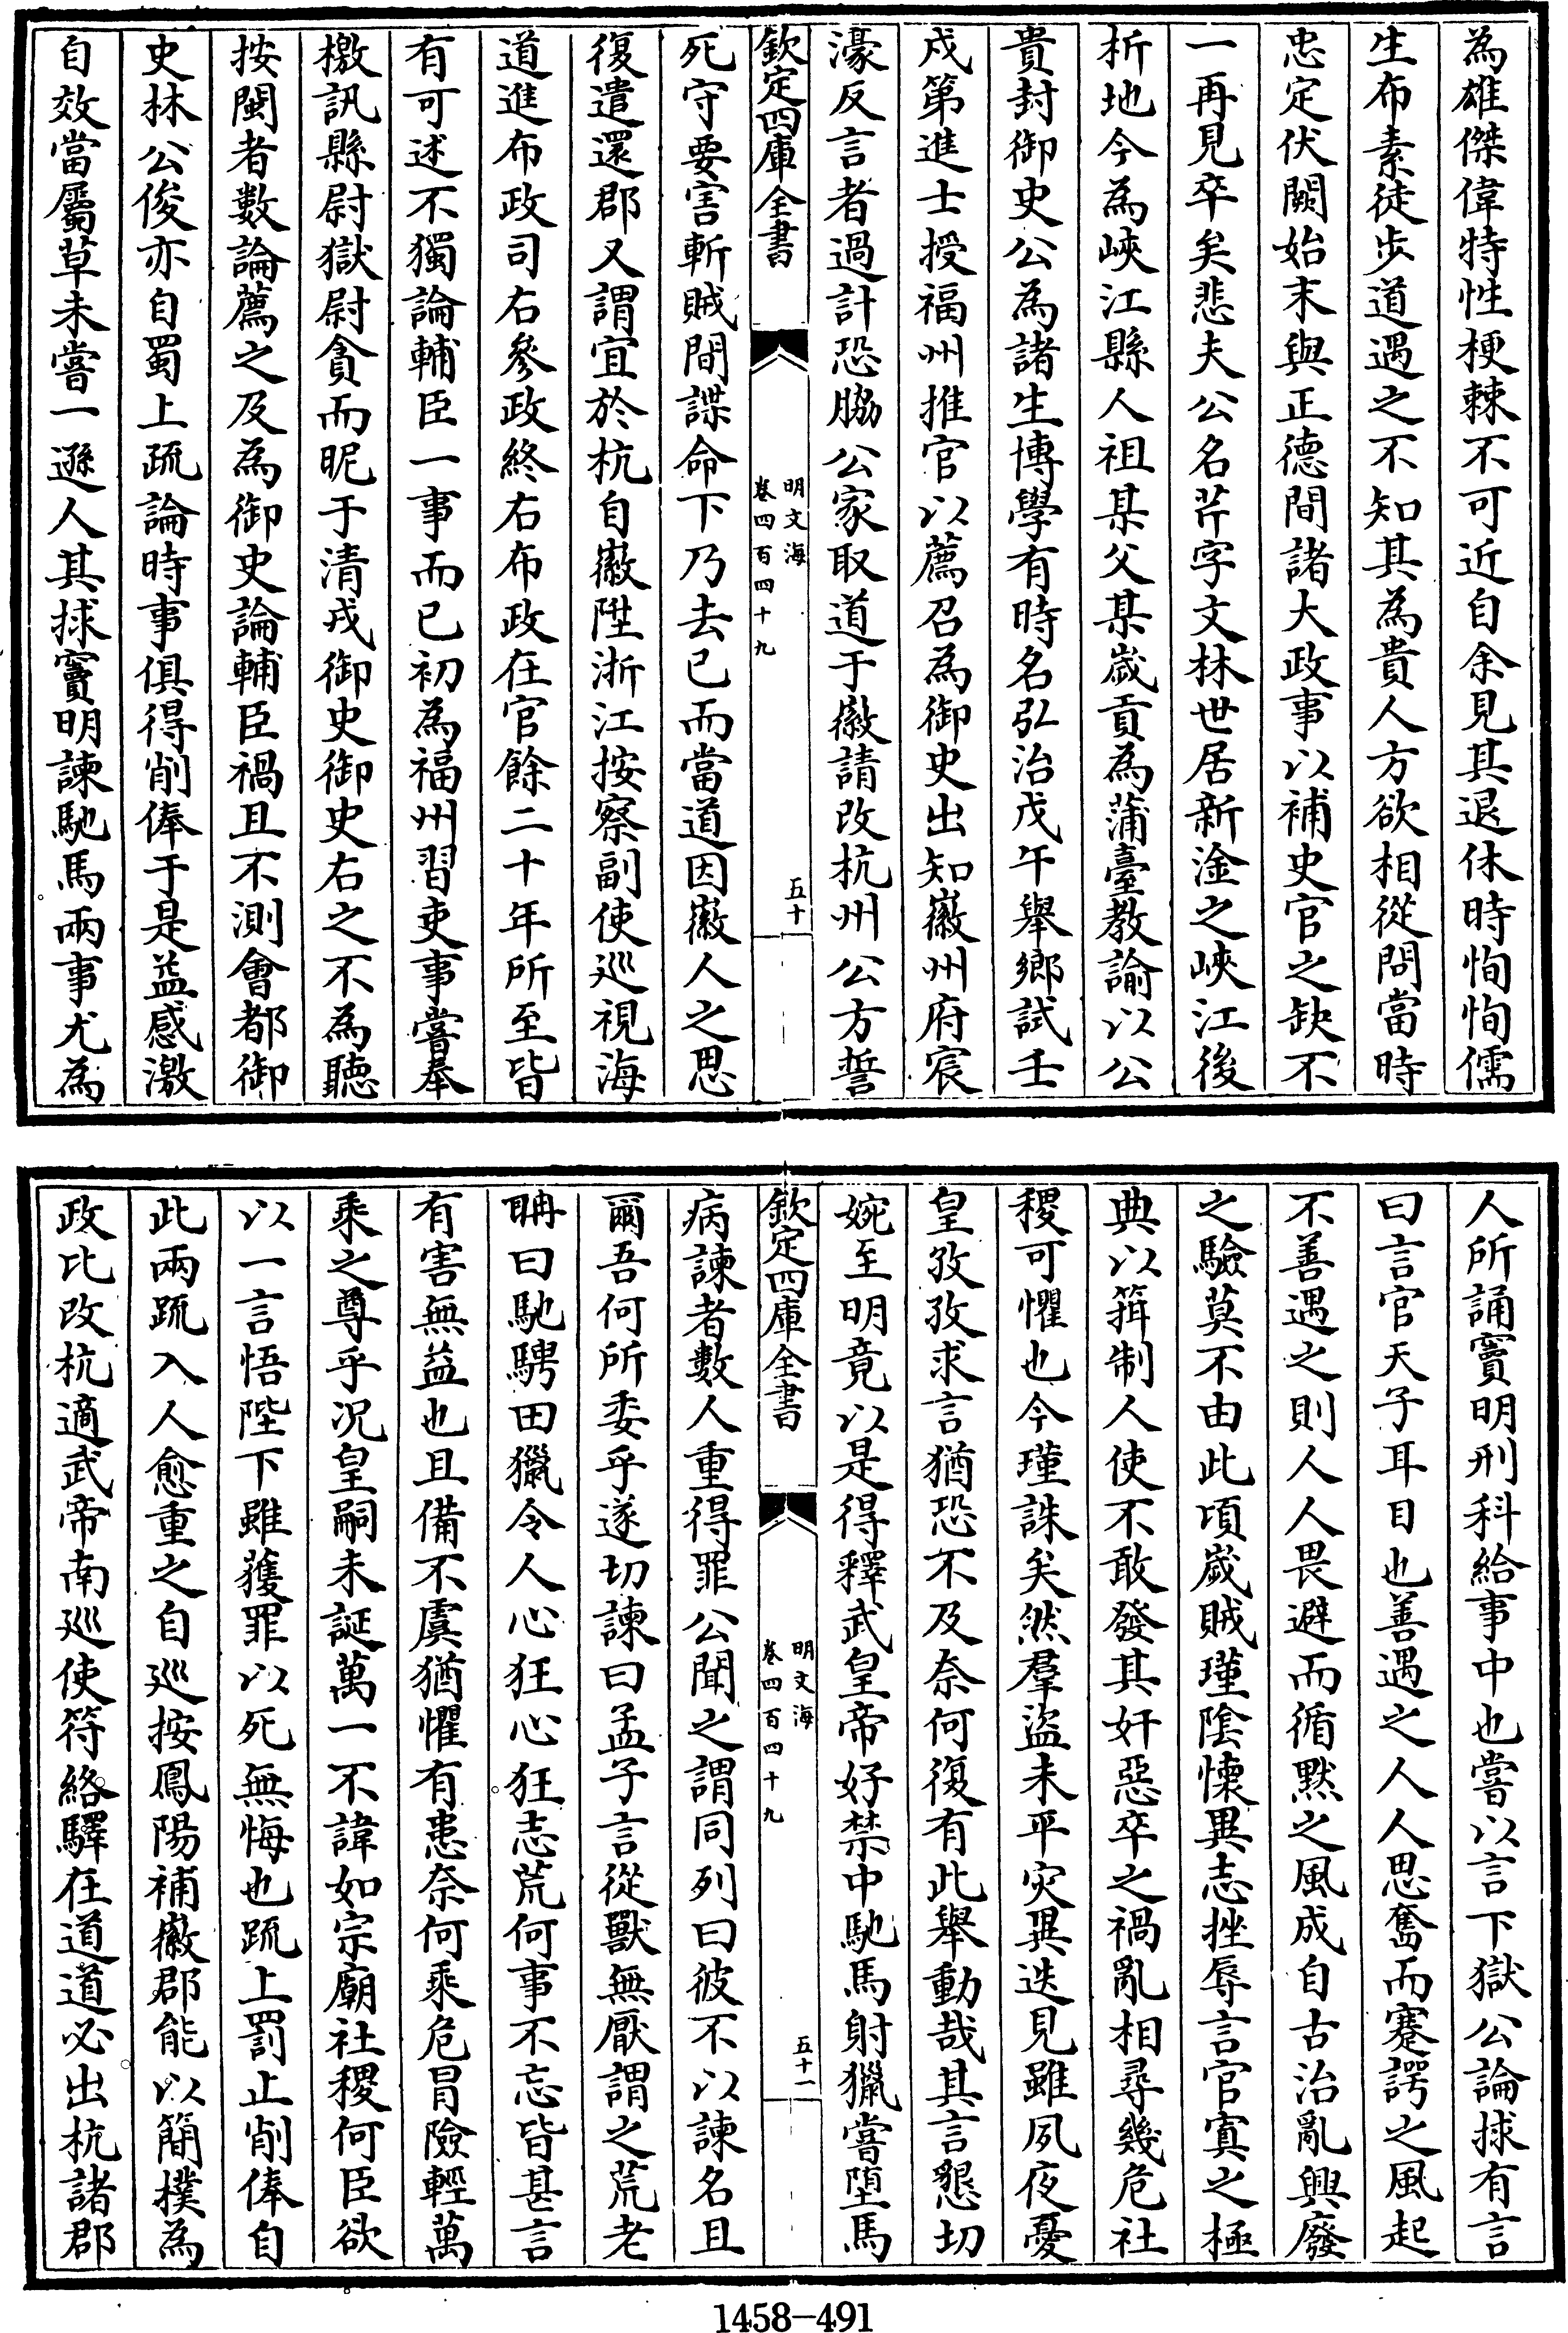 為雄傑偉特性梗棘不可近自余見其退休時恂恂儒
生布素徒步道遇之不知其為貴人方欲相從問當時
忠定伏闕始末與正德間諸大政事以補史官之缺不
一再見卒矣悲夫公名芹字文林世居新淦之峽江後
析地今為峽江縣人祖某父某嵗貢為蒲臺教諭以公
貴封御史公為諸生博學有時名弘治戊午舉鄉試壬
戍第進士授福州推官以薦召為御史出知徽州府宸
濠反言者過計恐脇公家取道于徽請改杭州公方誓
欽定四庫全書
明文海
卷四百四十九
五十
死守要害斬賊間諜命下乃去已而當道因徽人之思
復遣還郡又謂宜於杭自徽陞浙江按察副使巡視海
道進布政司右參政終右布政在官餘二十年所至皆
有可述不獨論輔臣一事而已初為福州習吏事嘗奉
檄訊縣尉獄尉貪而昵于清戎御史御史右之不為聽
按閩者數論薦之及為御史論輔臣禍且不測會都御
史林公俊亦自蜀上疏論時事俱得削俸于是益感激
自效當屬草未嘗一遜人其捄竇明諫馳馬兩事尤為
人所誦竇明刑科給事中也嘗以言下獄公論捄有言
曰言官天子耳目也善遇之人人思奮而蹇諤之風起
不善遇之則人人畏避而循黙之風成自古治亂興廢
之驗莫不由此頃嵗賊瑾陰懐異志挫辱言官寘之極
典以箝制人使不敢發其奸惡卒之禍亂相尋幾危社
稷可懼也今瑾誅矣然羣盜未平灾異迭見雖夙夜憂
皇孜孜求言猶恐不及奈何復有此舉動哉其言懇切
婉至明竟以是得釋武皇帝好禁中馳馬射獵嘗墮馬
欽定四庫全書
明文海
卷四百四十九
五十一
病諫者數人重得罪公聞之謂同列曰彼不以諫名且
爾吾何所委乎遂切諫曰孟子言從獸無厭謂之荒老
聃曰馳騁田獵令人心狂心狂志荒何事不忘皆甚言
有害無益也且備不虞猶懼有患奈何乘危冒險輕萬
乘之尊乎況皇嗣未誕萬一不諱如宗廟社稷何臣欲
以一言悟陛下雖獲罪以死無悔也疏上罰止削俸自
此兩疏入人愈重之自巡按鳳陽補徽郡能以簡撲為
政比改杭適武帝南巡使符絡驛在道道必出杭諸郡
1458-491